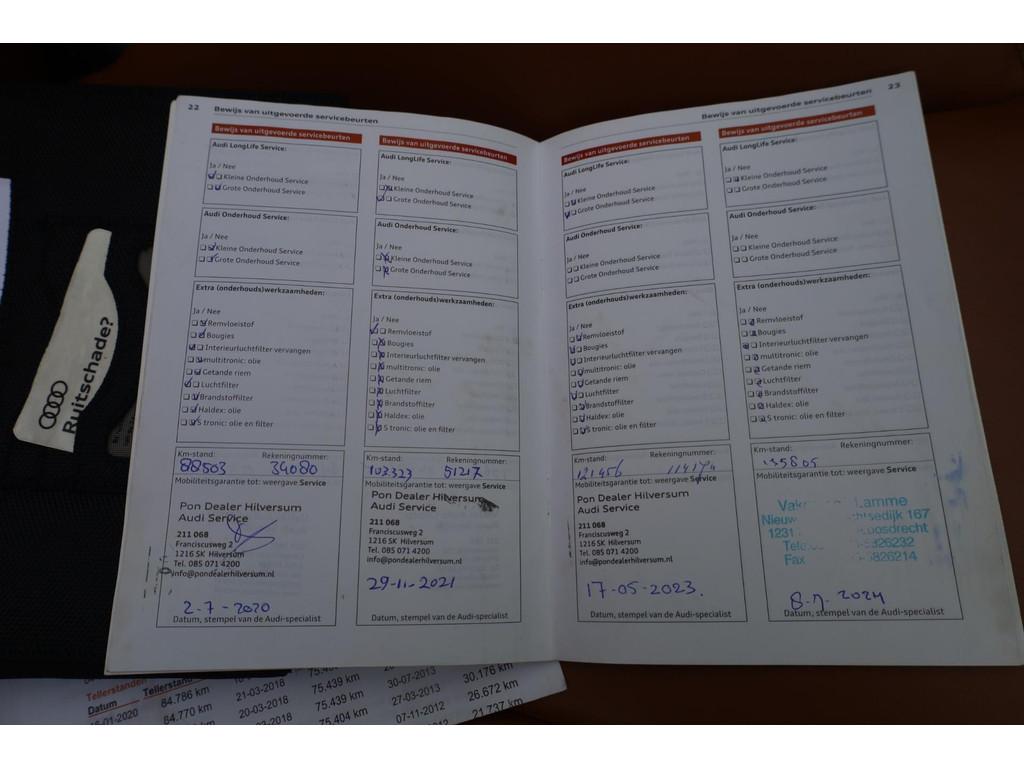 22 Bewijs van uitgevoerde servicebeurten
Bewijs van uitgevoerde servicebeurten
Audi LongLife Service:
Ja / Nee
Kleine Onderhoud Service
Grote Onderhoud Service
Audi Onderhoud Service:
Ja / Nee
Kleine Onderhoud Service
Grote Onderhoud Service
Extra (onderhouds)werkzaamheden:
Ja / Nee
Remvloeistof
Bougies
Interieurluchtfilter vervangen
multitronic: olie
Getande riem
Luchtfilter
Brandstoffilter
Haldex: olie
S tronic: olie en filter
Km-stand: Rekeningnummer:
88503 34080
Mobiliteitsgarantie tot: weergave Service
Pon Dealer Hilversum
Audi Service
211 068
Franciscusweg 2
1216 SK Hilversum
Tel. 085 071 4200
info@pondealerhilversum.nl
2-7-2020
Datum, stempel van de Audi-specialist
Bewijs van uitgevoerde servicebeurten
Audi LongLife Service:
Ja / Nee
Kleine Onderhoud Service
Grote Onderhoud Service
Audi Onderhoud Service:
Ja / Nee
Kleine Onderhoud Service
Grote Onderhoud Service
Extra (onderhouds)werkzaamheden:
Ja / Nee
Remvloeistof
Bougies
Interieurluchtfilter vervangen
multitronic: olie
Getande riem
Luchtfilter
Brandstoffilter
Haldex: olie
S tronic: olie en filter
Km-stand: Rekeningnummer:
103323 51217
Mobiliteitsgarantie tot: weergave Service
Pon Dealer Hilversum
Audi Service
211 068
Franciscusweg 2
1216 SK Hilversum
Tel. 085 071 4200
info@pondealerhilversum.nl
29-11-2021
Datum, stempel van de Audi-specialist
Bewijs van uitgevoerde servicebeurten 23
Bewijs van uitgevoerde servicebeurten
Audi LongLife Service:
Ja / Nee
Kleine Onderhoud Service
Grote Onderhoud Service
Audi Onderhoud Service:
Ja / Nee
Kleine Onderhoud Service
Grote Onderhoud Service
Extra (onderhouds)werkzaamheden:
Ja / Nee
Remvloeistof
Bougies
Interieurluchtfilter vervangen
multitronic: olie
Getande riem
Luchtfilter
Brandstoffilter
Haldex: olie
S tronic: olie en filter
Km-stand: Rekeningnummer:
121456
Mobiliteitsgarantie tot: weergave Service
Pon Dealer Hilversum
Audi Service
211 068
Franciscusweg 2
1216 SK Hilversum
Tel. 085 071 4200
info@pondealerhilversum.nl
17-05-2023.
Datum, stempel van de Audi-specialist
Bewijs van uitgevoerde servicebeurten
Audi LongLife Service:
Ja / Nee
Kleine Onderhoud Service
Grote Onderhoud Service
Audi Onderhoud Service:
Ja / Nee
Kleine Onderhoud Service
Grote Onderhoud Service
Extra (onderhouds)werkzaamheden:
Ja / Nee
Remvloeistof
Bougies
Interieurluchtfilter vervangen
multitronic: olie
Getande riem
Luchtfilter
Brandstoffilter
Haldex: olie
S tronic: olie en filter
Km-stand: Rekeningnummer:
135805
Mobiliteitsgarantie tot: weergave Service
Lamme
167
1231
Fax
8-7-2024
Datum, stempel van de Audi-specialist
Ruitschade?
Tellerstanden
Datum Tellerstand
84.786 km
84.770 km
21-03-2018
20-03-2018
75.439 km
75.439 km
75.404 km
30-07-2013
27-03-2013
07-11-2012
30.176 km
26.672 km
21.737 km